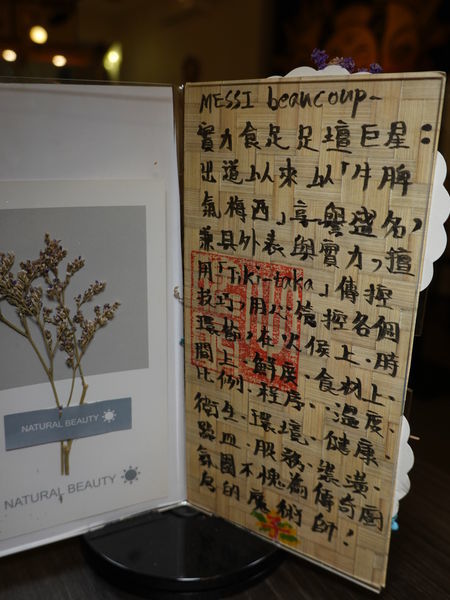 NATURAL BEAUTY
NATURAL BEAUTY
MESSI beaucoup~
實力食足足壇巨星：
出道以來以「牛脾
氣梅西」享譽盛名，
兼具外表與實力，擅
用「Tiki-taka」傳控
技巧，用心控各個
環節，在火候上、時
間上、鮮度、食材上、
比例、程序、溫度、
衛生、環境、健康、
器皿、服務、裝潢、
氛圍不愧為傳奇廚
房的魔術師！